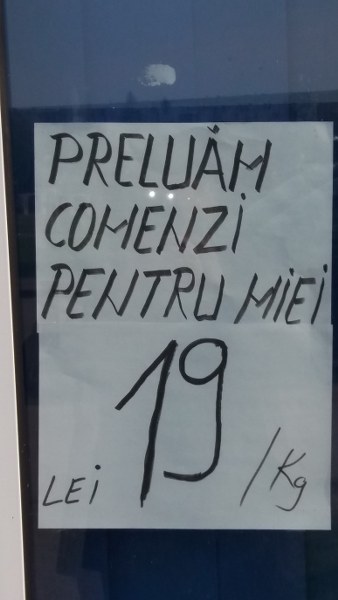 PRELUĂM
COMENZI
PENTRU MIEI
19
LEI /Kg